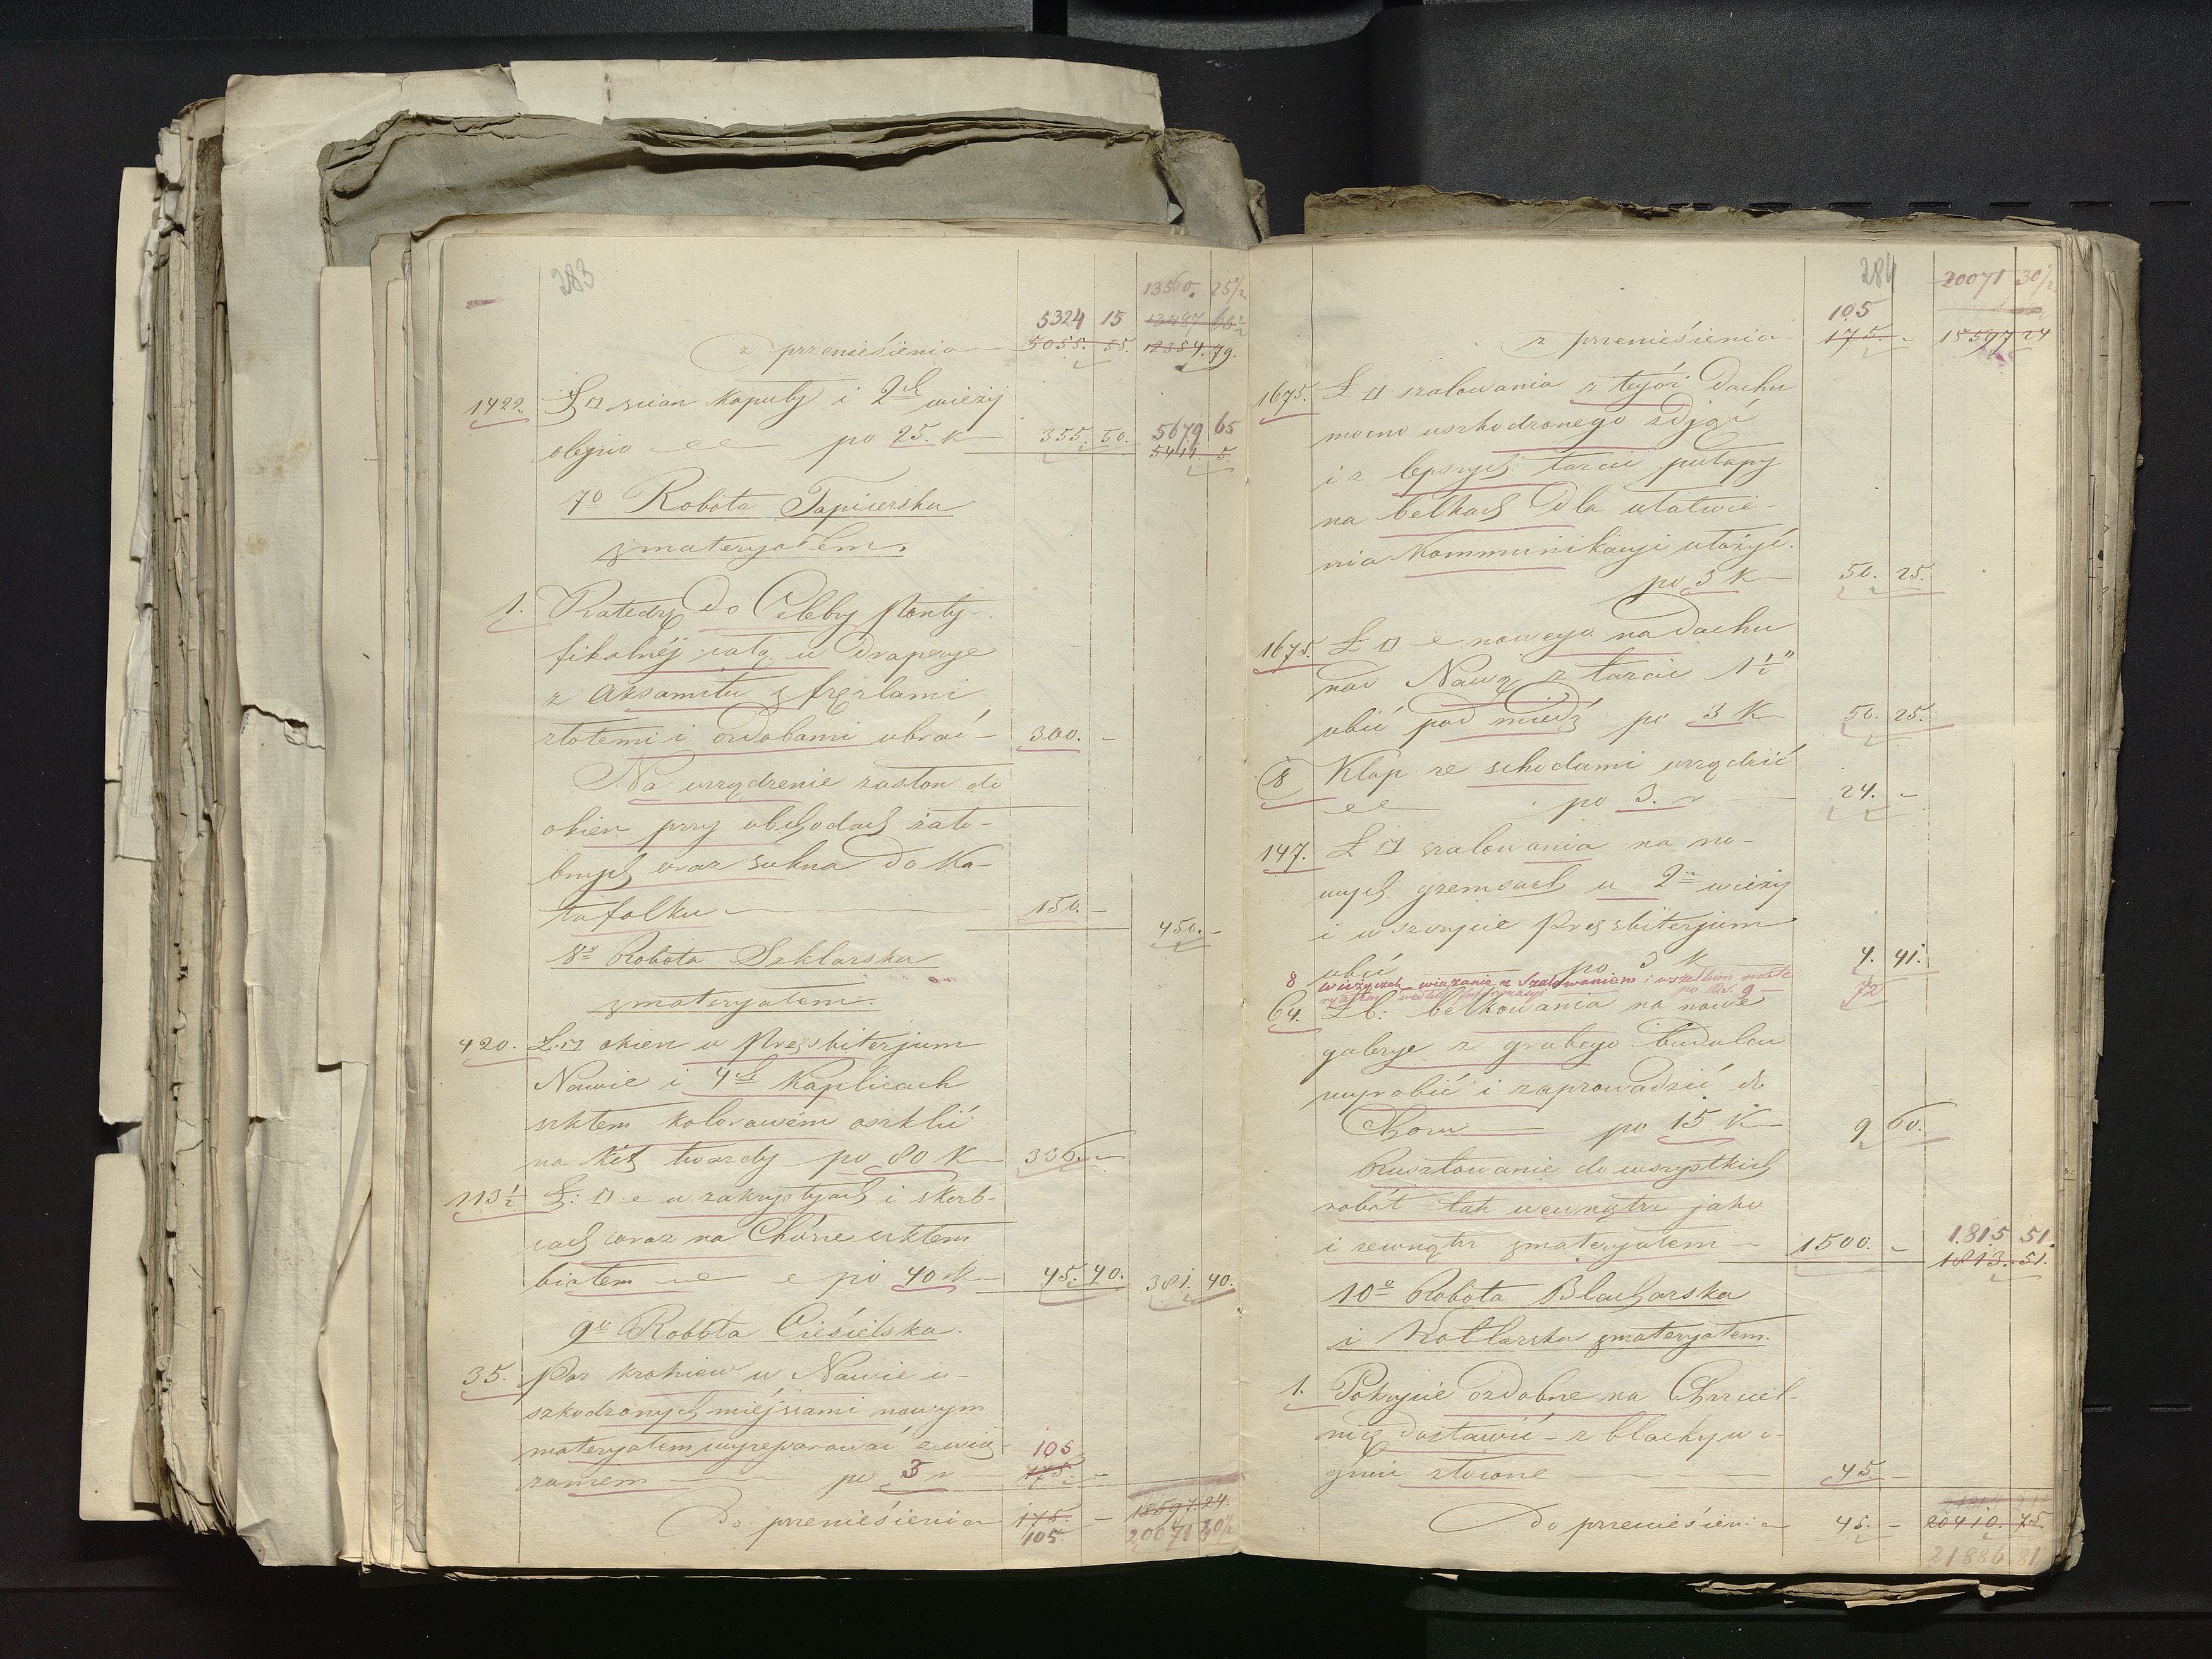 283
13560. 25½
5324 15 13487 66½
z przeniesienia 5055. 55. 12354. 79.
1422 Ł □ ścian Kopuły i 2ch wieży
olejno " " po 25. K 355. 50. 5679 65
5411. 5.
7o Robota Tapicerska
z materyałem.
1. Katedrę do Celebry Ponty-
fikalnéj całą w Draperye
z Aksamitu z fręzlami
złotemi i ozdobami ubrać 300. -
Na urządzenie zasłon do
okien przy obchodach żało-
bnych oraz sukna do Ka-
tafalku 150. -
450. -
8o Robota Szklarska
z materyałem.
420. Ł. □ okien w Prezbiterjum
Nawie i 4ch Kaplicach
szkłem kolorowém oszklić
na Kit twardy po 80 K 336. -
113½ Ł: □ " w zakrystyach i skarb-
cach oraz na Chórze szkłem
białem " " po 40 K 45. 40. 381. 40.
9o Robota Ciesielska.
35. Par krokiew w Nawie u-
szkodzonych miejscami nowym
materyałem wyreparować z wią- 105
zaniem po 3 r 175. -
Do przeniesienia 175. - 18597 24.
105. 20071 30½
284
20071 30½
105
z przeniesienia 175. - 18597 24
1675. Ł □ szalowania z tyói Dachu
mocno uszkodzonego zdjąć
i z lepszych tarcic pułapy
na belkach dla ułatwie-
nia Kommunikacyi ułożyć.
po 3 K 50. 25.
1675. Ł □ " nowego na dachu
nad Nawą z tarcic 1½"
obić pod miedź po 3 K 50. 25.
8 Klap ze schodami urządzić
" " po 3. r 24. -
147. Ł □ szalowania na no-
wych gzemsach u 2ch wieży
i w szczycie Prezbiterjum
obić po 3 K 4. 41.
8 wieżyczek wiązanie z szalowaniem i wszelkim mate
ryałem według informacyi po Rs. 9 72
64. Ł b: belkowania na nowe
galerye z grubego budulcu
wyrobić i zaprowadzić do
Choru po 15 K 9 60.
Rusztowanie do wszystkich
robót tak wewnątrz jako
i zewnątrz z materyałem 1500. - 1815 51.
1813. 51.
10o Robota Blacharska
i Kotlarska z materyałem.
1. Pokrycie ozdobne na Chrzciel-
nicę dostawić z blachy w o-
gniu złocone 45. -
Do przeniesienia 45. - 20410. 75
21886 81